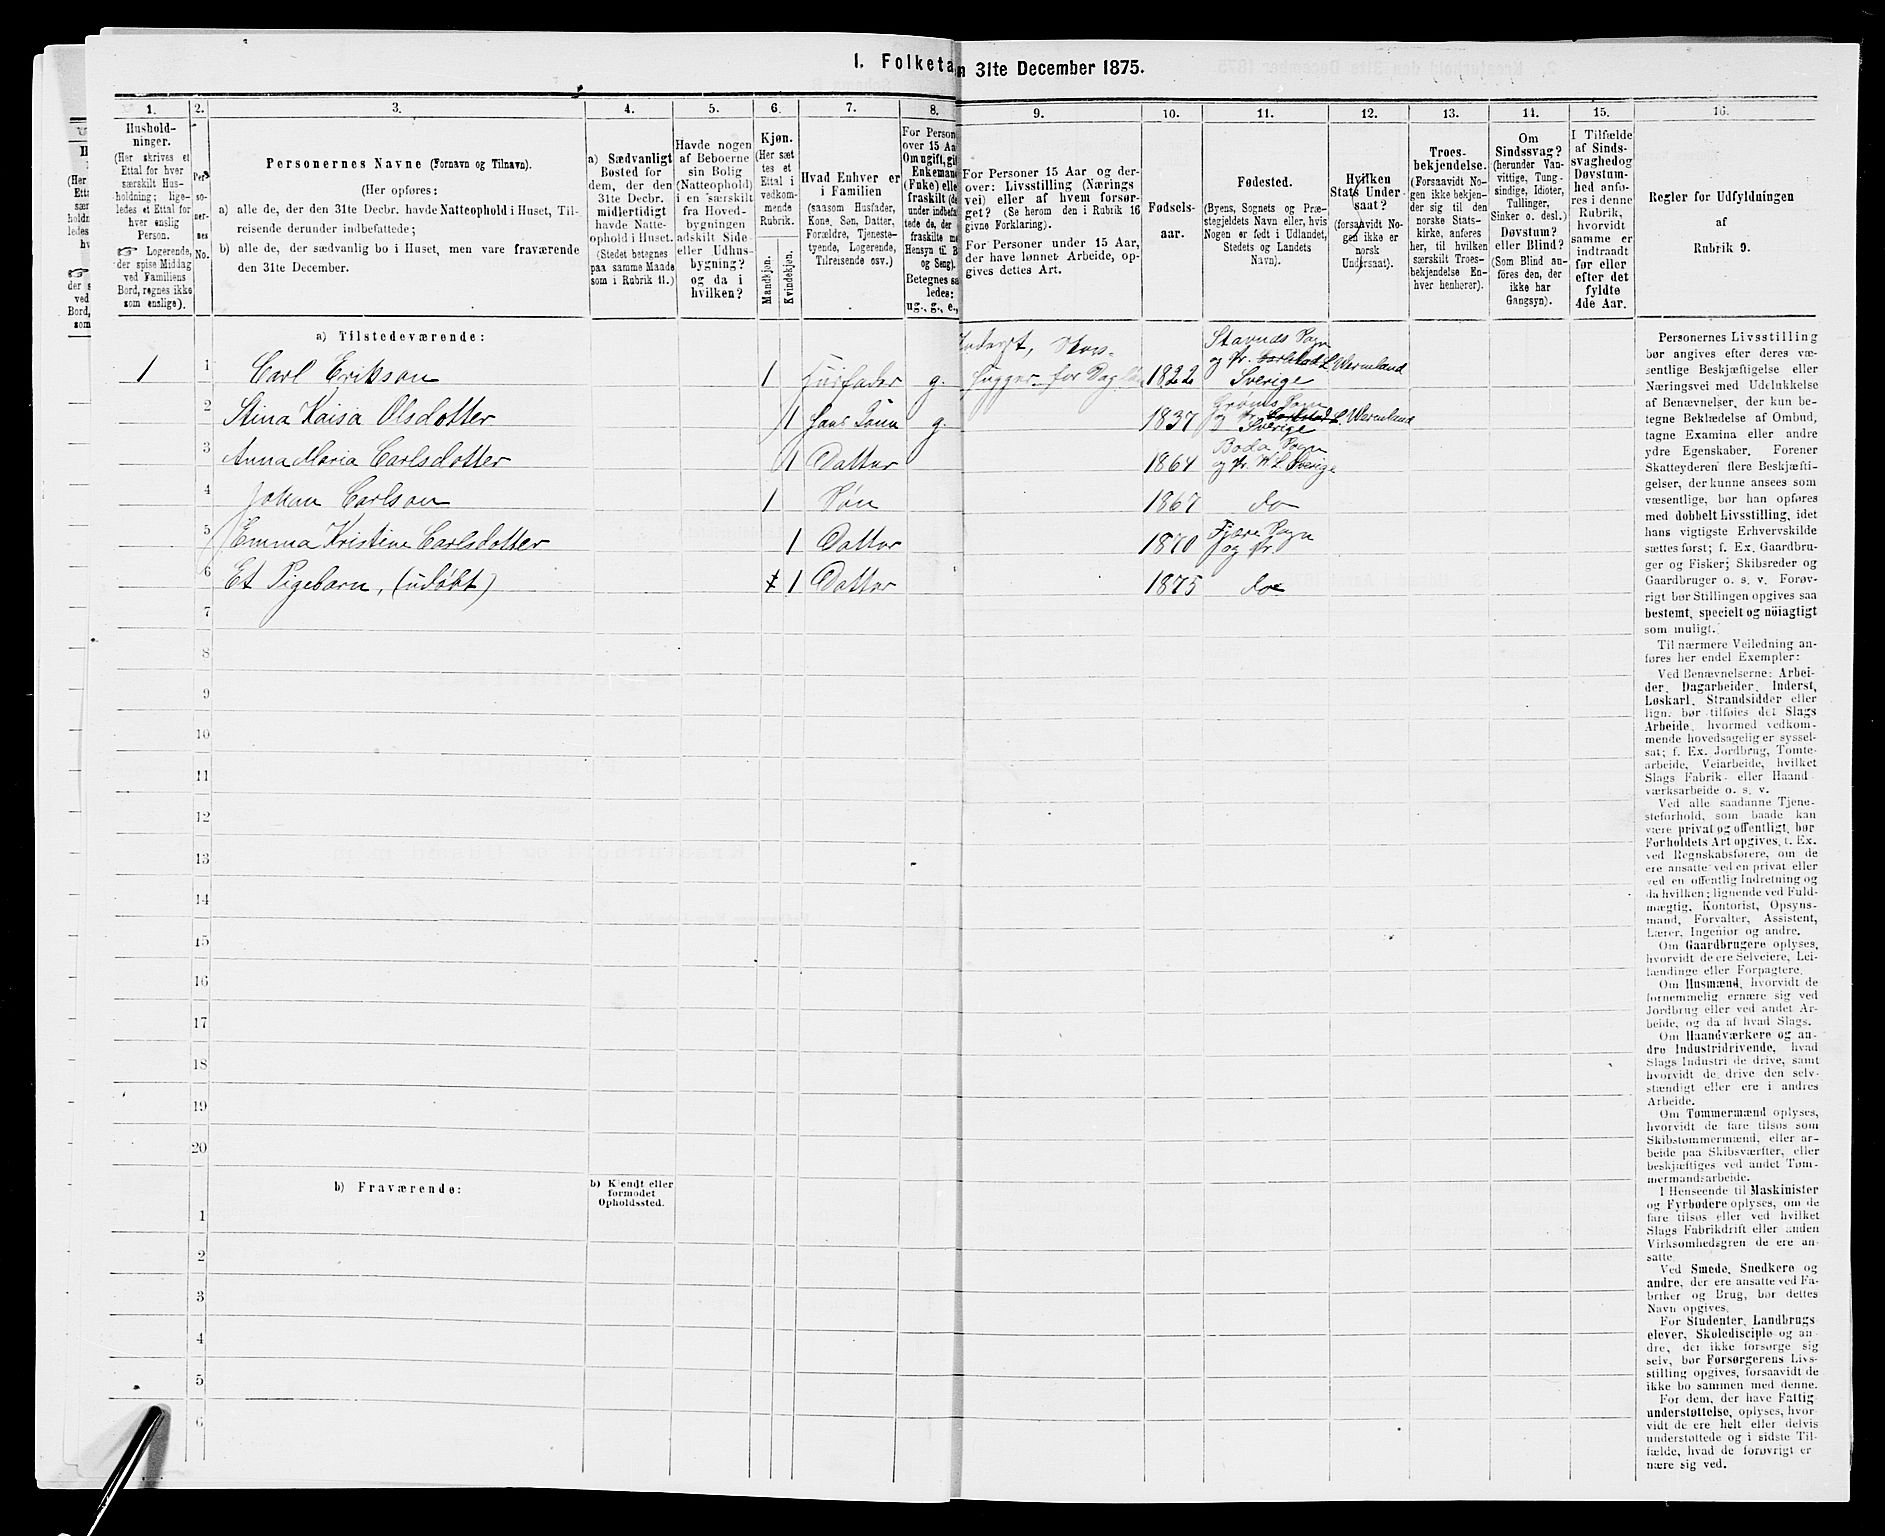 I. Folketa
n 31te December 1875.
1.
2.
3.
4.
5.
6.
7.
8.
9.
10.
11.
12.
13.
14.
15.
16.
Hushold-
ninger.
(Her skrives et
Ettal for hver
særskilt Hus-
holdning; lige-
ledes et Ettal for
hver enslig
Person.
☞ Logerende,
der spise Middag
ved Familiens
Bord, regnes ikke
som enslige).
Per-
so-
ner-
nes
No.
Personernes Navne (Fornavn og Tilnavn).
(Her opføres:
a) alle de, der den 31te Decbr. havde Natteophold i Huset, Til-
reisende derunder indbefattede;
b) alle de, der sædvanlig bo i Huset, men vare fraværende
den 31te December.
a) Sædvanligt
Bosted for
dem, der den
31te Decbr.
midlertidigt
havde Natte-
ophold i Huset.
(Stedet betegnes
paa samme Maade
som i Rubrik 11.)
Havde nogen
af Beboerne
sin Bolig
(Natteophold)
i en særskilt
fra Hoved-
bygningen
adskilt Side-
eller Udhus-
bygning?
og da i
hvilken?
Kjøn.
(Her sæt
tes et
Ettal i
vedkom-
mende
Rubrik.
Mandkjøn.
Kvindekjøn.
Hvad Enhver er
i Familien
(saasom Husfader,
Kone, Søn, Datter,
Forældre, Tjeneste-
tyende, Logerende,
Tilreisende osv.)
For Person
over 15 Aa
Om ugift, git
Enkemand
(Enke) elle
fraskilt (de
under indbefat
tede de, der
fraskilte me
Hensyn til B
og Seng).
Betegnes sa
ledes:
ug., g., e.,
For Personer 15 Aar og der-
over: Livsstilling (Nærings
vei) eller af hvem forsør-
get? (Se herom den i Rubrik 16
givne Forklaring).
For Personer under 15 Aar,
der have lønnet Arbeide, op-
gives dettes Art.
Fødsels-
aar.
Fødested.
(Byens, Sognets og Præ-
stegjeldets Navn eller, hvis
Nogen er født i Udlandet,
Stedets og Landets
Navn).
Hvilken
Stats Under-
saat?
(forsaavidt No-
gen ikke er
norsk
Undersaat).
Troes-
bekjendelse.
(Forsaavidt No-
gen ikke bekjen-
der sig til den
norske Stats-
kirke, anføres
her, til hvilken
særskilt Troes-
bekjendelse En-
hver henhører).
Om
Sindssvag?
(herunder Van-
vittige, Tung-
sindige, Idioter,
Tullinger,
Sinker o. desl.)
Døvstum?
eller Blind?
(Som Blind an-
føres den, der
ikke har
Gangsyn).
I Tilfælde
af Sinds-
svaghedog
Døvstum-
hed anfø-
res i denne
Rubrik,
hvorvidt
samme er
indtraadt
før eller
efter det
fyldte
4de Aar.
Regler for Udfyldningen
af
Rubrik 9.
a) Tilstedeværende:
1 1 Carl Erikson 1 Husfader g. Inderst, Skov-
hugger for Dagløn 1822 Stavnäs Sogn
og Pr. Carlstad L. Wermland
Sverige
2 Stina Kaisa Olsdotter 1 Hans Kone g. 1837 Grøms Sogn
og Pr. Carlstad L. Wermland
Sverige
3 Anna Maria Carlsdotter 1 Dattur 1864 Boda Sogn
og Pr. W. L. Sverige
4 Johan Carlson 1 Søn 1867 do
5 Emma Kristine Carlsdotter 1 Dattur 1870 Fjære Sogn
og Pr.
6 Et Pigebarn, (udøbt) 1 1 Dattur 1875 do
7
8
9
10
11
12
13
14
15
16
17
18
19
20
b) Fraværende:
b) Kjendt eller
formodet
Opholdssted.
1
2
3
4
5
6
Personernes Livsstilling
bør angives efter deres væ-
sentlige Beskjæftigelse eller
Næringsvei med Udelukkelse
af Benævnelser, der kun be-
tegne Beklædelse af Ombud,
tagne Examina eller andre
ydre Egenskaber. Forener
Skatteyderen flere Beskjæfti-
gelser, der kunne ansees som
væsentlige, bør han opføres
med dobbelt Livsstilling, idet
hans vigtigste Erhvervskilde
sættes først; f. Ex. Gaardbru-
ger og Fisker; Skibsreder og
Gaardbruger o. s. v. Forøv-
rigt bør Stillingen opgives saa
bestemt, specielt og nöiagtigt
som muligt.
Til nærmere Veiledning an-
føres her endel Exempler:
Ved Benævnelserne: Arbei-
der, Dagarbeider, Inderst,
Løskarl, Strandsidder eller
lign. bør tilføies det Slags
Arbeide, hvormed vedkom-
mende hovedsagelig er syssel-
sat; f. Ex. Jordbrug, Tomte-
arbeide, Veiarbeide, hvilket
Slags Fabrik- eller Haand-
værksarbeide o. s. v.
Ved alle saadanne Tjene-
steforhold, som baade kan
være privat og offentligt, bør
Forholdets Art opgives, f. Ex.
ved Regnskabsførere, om de
ere ansatte ved en privat eller
ved en offentlig Indretning og
da hvilken; lignende ved Fuld-
mægtig, Kontorist, Opsyns-
mand, Forvalter, Assistent,
Lærer, Ingeniør og andre.
Om Gaardbrugere oplyses,
hvorvidt de ere Selveiere, Lei-
lændinge eller Forpagtere.
Om Husmænd, hvorvidt de
fornemmelig ernære sig ved
Jordbrug eller ved andet Ar-
beide, og da af hvad Slags.
Om Haandværkere og an-
dre Industridrivende, hvad
Slags Industri de drive, samt
hvorvidt de drive den selv-
stændigt eller ere i andres
Arbeide.
Om Tømmermænd oplyses,
hvorvidt de fare tilsøs som
Skibstømmermænd, eller ar-
beide paa Skibsværfter, eller
beskjæftiges ved andet Tøm-
mermandsarbeide.
I Henseende til Maskinister
og Fyrbødere oplyses, om de
fare tilsøs eller ved hvilket
Slags Fabrikdrift eller anden
Virksomhedsgren de ere an-
satte.
Ved Smede, Snedkere og
andre, der ere ansatte ved Fa-
briker og Brug, bør dettes
Navn opgives.
For Studenter, Landbrugs
elever, Skoledisciple og an-
dre, der ikke forsørge sig
selv, bør Forsørgerens Livs-
stilling opgives, forsaavidt de
ikke bo sammen med denne.
For dem, der have Fattig-
understøttelse, oplyses, hvor-
vidt de ere helt eller delvis
understøttede og i sidste Til-
fælde, hvad de forøvrigt er
nære sig ved.